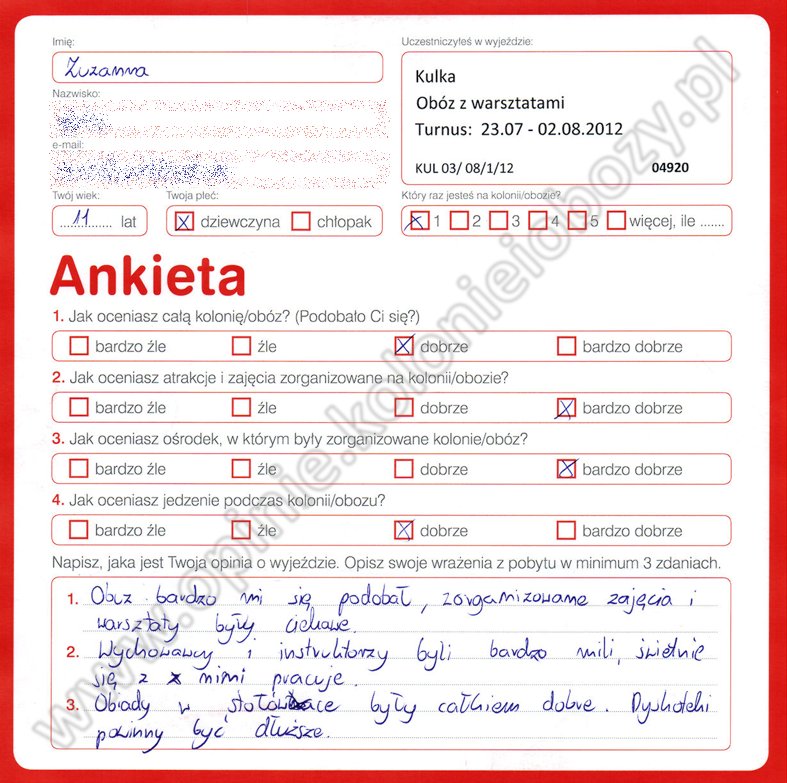 Imię:
Zuzanna
Nazwisko:
e-mail:
Twój wiek:
11 lat
Twoja płeć:
dziewczyna chłopak
Uczestniczyłeś w wyjeździe:
Kulka
Obóz z warsztatami
Turnus: 23.07 - 02.08.2012
KUL 03/ 08/1/12 04920
Który raz jesteś na kolonii/obozie?
1 2 3 4 5 więcej, ile .......
Ankieta
1. Jak oceniasz całą kolonię/obóz? (Podobało Ci się?)
bardzo źle źle dobrze bardzo dobrze
2. Jak oceniasz atrakcje i zajęcia zorganizowane na kolonii/obozie?
bardzo źle źle dobrze bardzo dobrze
3. Jak oceniasz ośrodek, w którym były zorganizowane kolonie/obóz?
bardzo źle źle dobrze bardzo dobrze
4. Jak oceniasz jedzenie podczas kolonii/obozu?
bardzo źle źle dobrze bardzo dobrze
Napisz, jaka jest Twoja opinia o wyjeździe. Opisz swoje wrażenia z pobytu w minimum 3 zdaniach.
1. Obuz bardzo mi się podobał, zorganizowane zajęcia i
warsztaty były ciekawe.
2. Wychowawcy i instruktorzy byli bardzo mili, świetnie
się z nimi pracuje.
3. Obiady w stołówce były całkiem dobre. Dyskoteki
powinny być dłuższe.
www.opinie.kolonieiobozy.pl